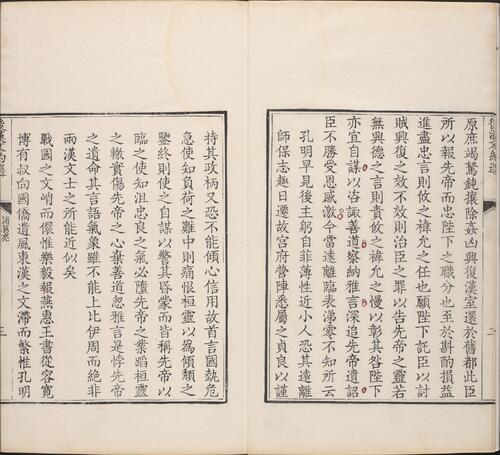 原庶竭駑鈍攘除姦凶興復漢室還於舊都此臣
所以報先帝而忠陛下之職分也至於斟酌損益
進盡忠言則攸之禕允之任也願陛下託臣以討
賊興復之效不效則治臣之罪以告先帝之靈若
無興德之言則責攸之禕允之慢以彰其咎陛下
亦宜自謀以咨諏善道察納雅言深追先帝遺詔
臣不勝受恩感激今當遠離臨表涕零不知所云
孔明早見後主躬自菲薄性近小人恐其遠離
師保志趣日遷故宮府營陣悉屬之貞良以謹
持其政柄又恐不能傾心信用故首言國埶危
急使知負荷之難中則痛恨桓靈以為傾頹之
鑒終則使之自謀以警其昏蒙而皆稱先帝以
臨之使知沮忠良之氣必墮先帝之業蹈桓靈
之轍實傷先帝之心棄善道忽雅言是悖先帝
之遺命其言語氣象雖不能上比伊周而絕非
兩漢文士之所能近似矣
戰國之文峭而儇惟樂毅報燕惠王書從容寬
博有叔向國僑遺風東漢之文滯而繁惟孔明
諸葛亮
三